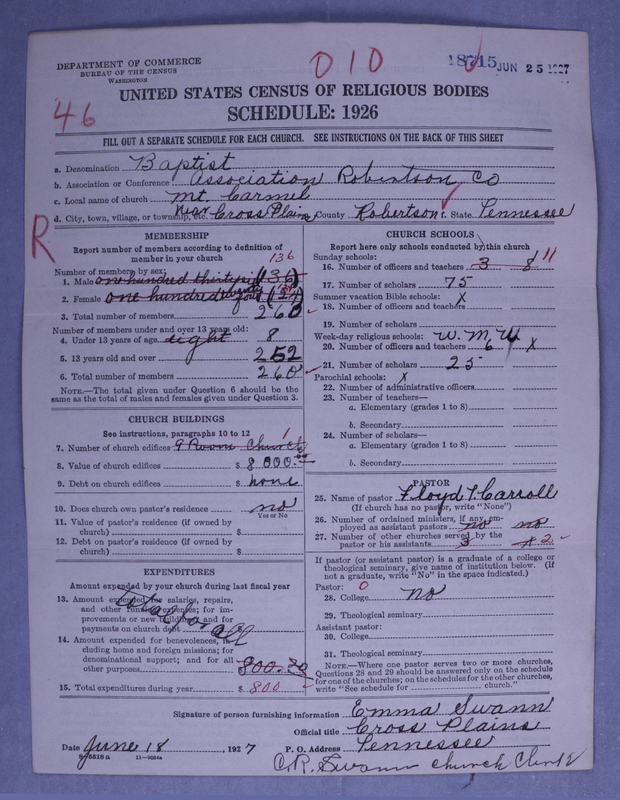 DEPARTMENT OF COMMERCE
BUREAU OF THE CENSUS
WASHINGTON
010
18715 JUN 25 1927
46
UNITED STATES CENSUS OF RELIGIOUS BODIES
SCHEDULE: 1926
FILL OUT A SEPARATE SCHEDULE FOR EACH CHURCH. SEE INSTRUCTIONS ON THE BACK OF THIS SHEET
a. Denomination Baptist
b. Association or Conference Association Robertson Co
c. Local name of church Mt. Carmel
d. City, town, village, or township, etc. Near Cross Plains County Robertson f. State Tennessee
R
MEMBERSHIP
Report number of members according to definition of
member in your church
136
Number of members by sex:
1. Male one hundred thirty (136)
2. Female one hundred twenty four
3. Total number of members 260
Number of members under and over 13 years old:
4. Under 13 years of age eight 8
5. 13 years old and over 252
6. Total number of members 260
NOTE.—The total given under Question 6 should be the
same as the total of males and females given under Question 3.
CHURCH BUILDINGS
See instructions, paragraphs 10 to 12
7. Number of church edifices 9 Room Church 1
8. Value of church edifices $ 8000.00
9. Debt on church edifices $ none
10. Does church own pastor's residence no
Yes or No
11. Value of pastor's residence (if owned by
church) $
12. Debt on pastor's residence (if owned by
church) $
EXPENDITURES
Amount expended by your church during last fiscal year
13. Amount expended for salaries, repairs,
and other running expenses; for im-
provements or new buildings; and for
payments on church debt
14. Amount expended for benevolences, in-
cluding home and foreign missions; for
denominational support; and for all
other purposes 800.00
15. Total expenditures during year $ 800
CHURCH SCHOOLS
Report here only schools conducted by this church
Sunday schools:
16. Number of officers and teachers 3 8 11
17. Number of scholars 75
Summer vacation Bible schools: X
18. Number of officers and teachers
19. Number of scholars
Week-day religious schools: W. M. U
20. Number of officers and teachers 6 X
21. Number of scholars 25
Parochial schools: X
22. Number of administrative officers
23. Number of teachers—
a. Elementary (grades 1 to 8)
b. Secondary
24. Number of scholars—
a. Elementary (grades 1 to 8)
b. Secondary
PASTOR
25. Name of pastor Floyd T. Carroll
(If church has no pastor, write "None")
26. Number of ordained ministers, if any, em-
ployed as assistant pastors no no
27. Number of other churches served by the
pastor or his assistants 3 2
If pastor (or assistant pastor) is a graduate of a college or
theological seminary, give name of institution below. (If
not a graduate, write "No" in the space indicated.)
Pastor: 0
28. College no
29. Theological seminary
Assistant pastor:
30. College
31. Theological seminary
NOTE.—Where one pastor serves two or more churches,
Questions 28 and 29 should be answered only on the schedule
for one of the churches; on the schedules for the other churches,
write "See schedule for church."
Signature of person furnishing information Emma Swann
Official title Cross Plains
Date June 18, 1927 P. O. Address Tennessee
C. R. Swann church Clerk